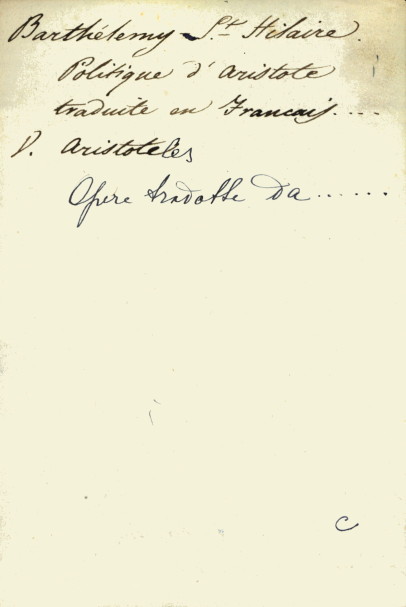 Barthélemy - S.t Hilaire.
Politique d'Aristote
traduite en Francais....
V. Aristoteles
Opere tradotte Da......
C